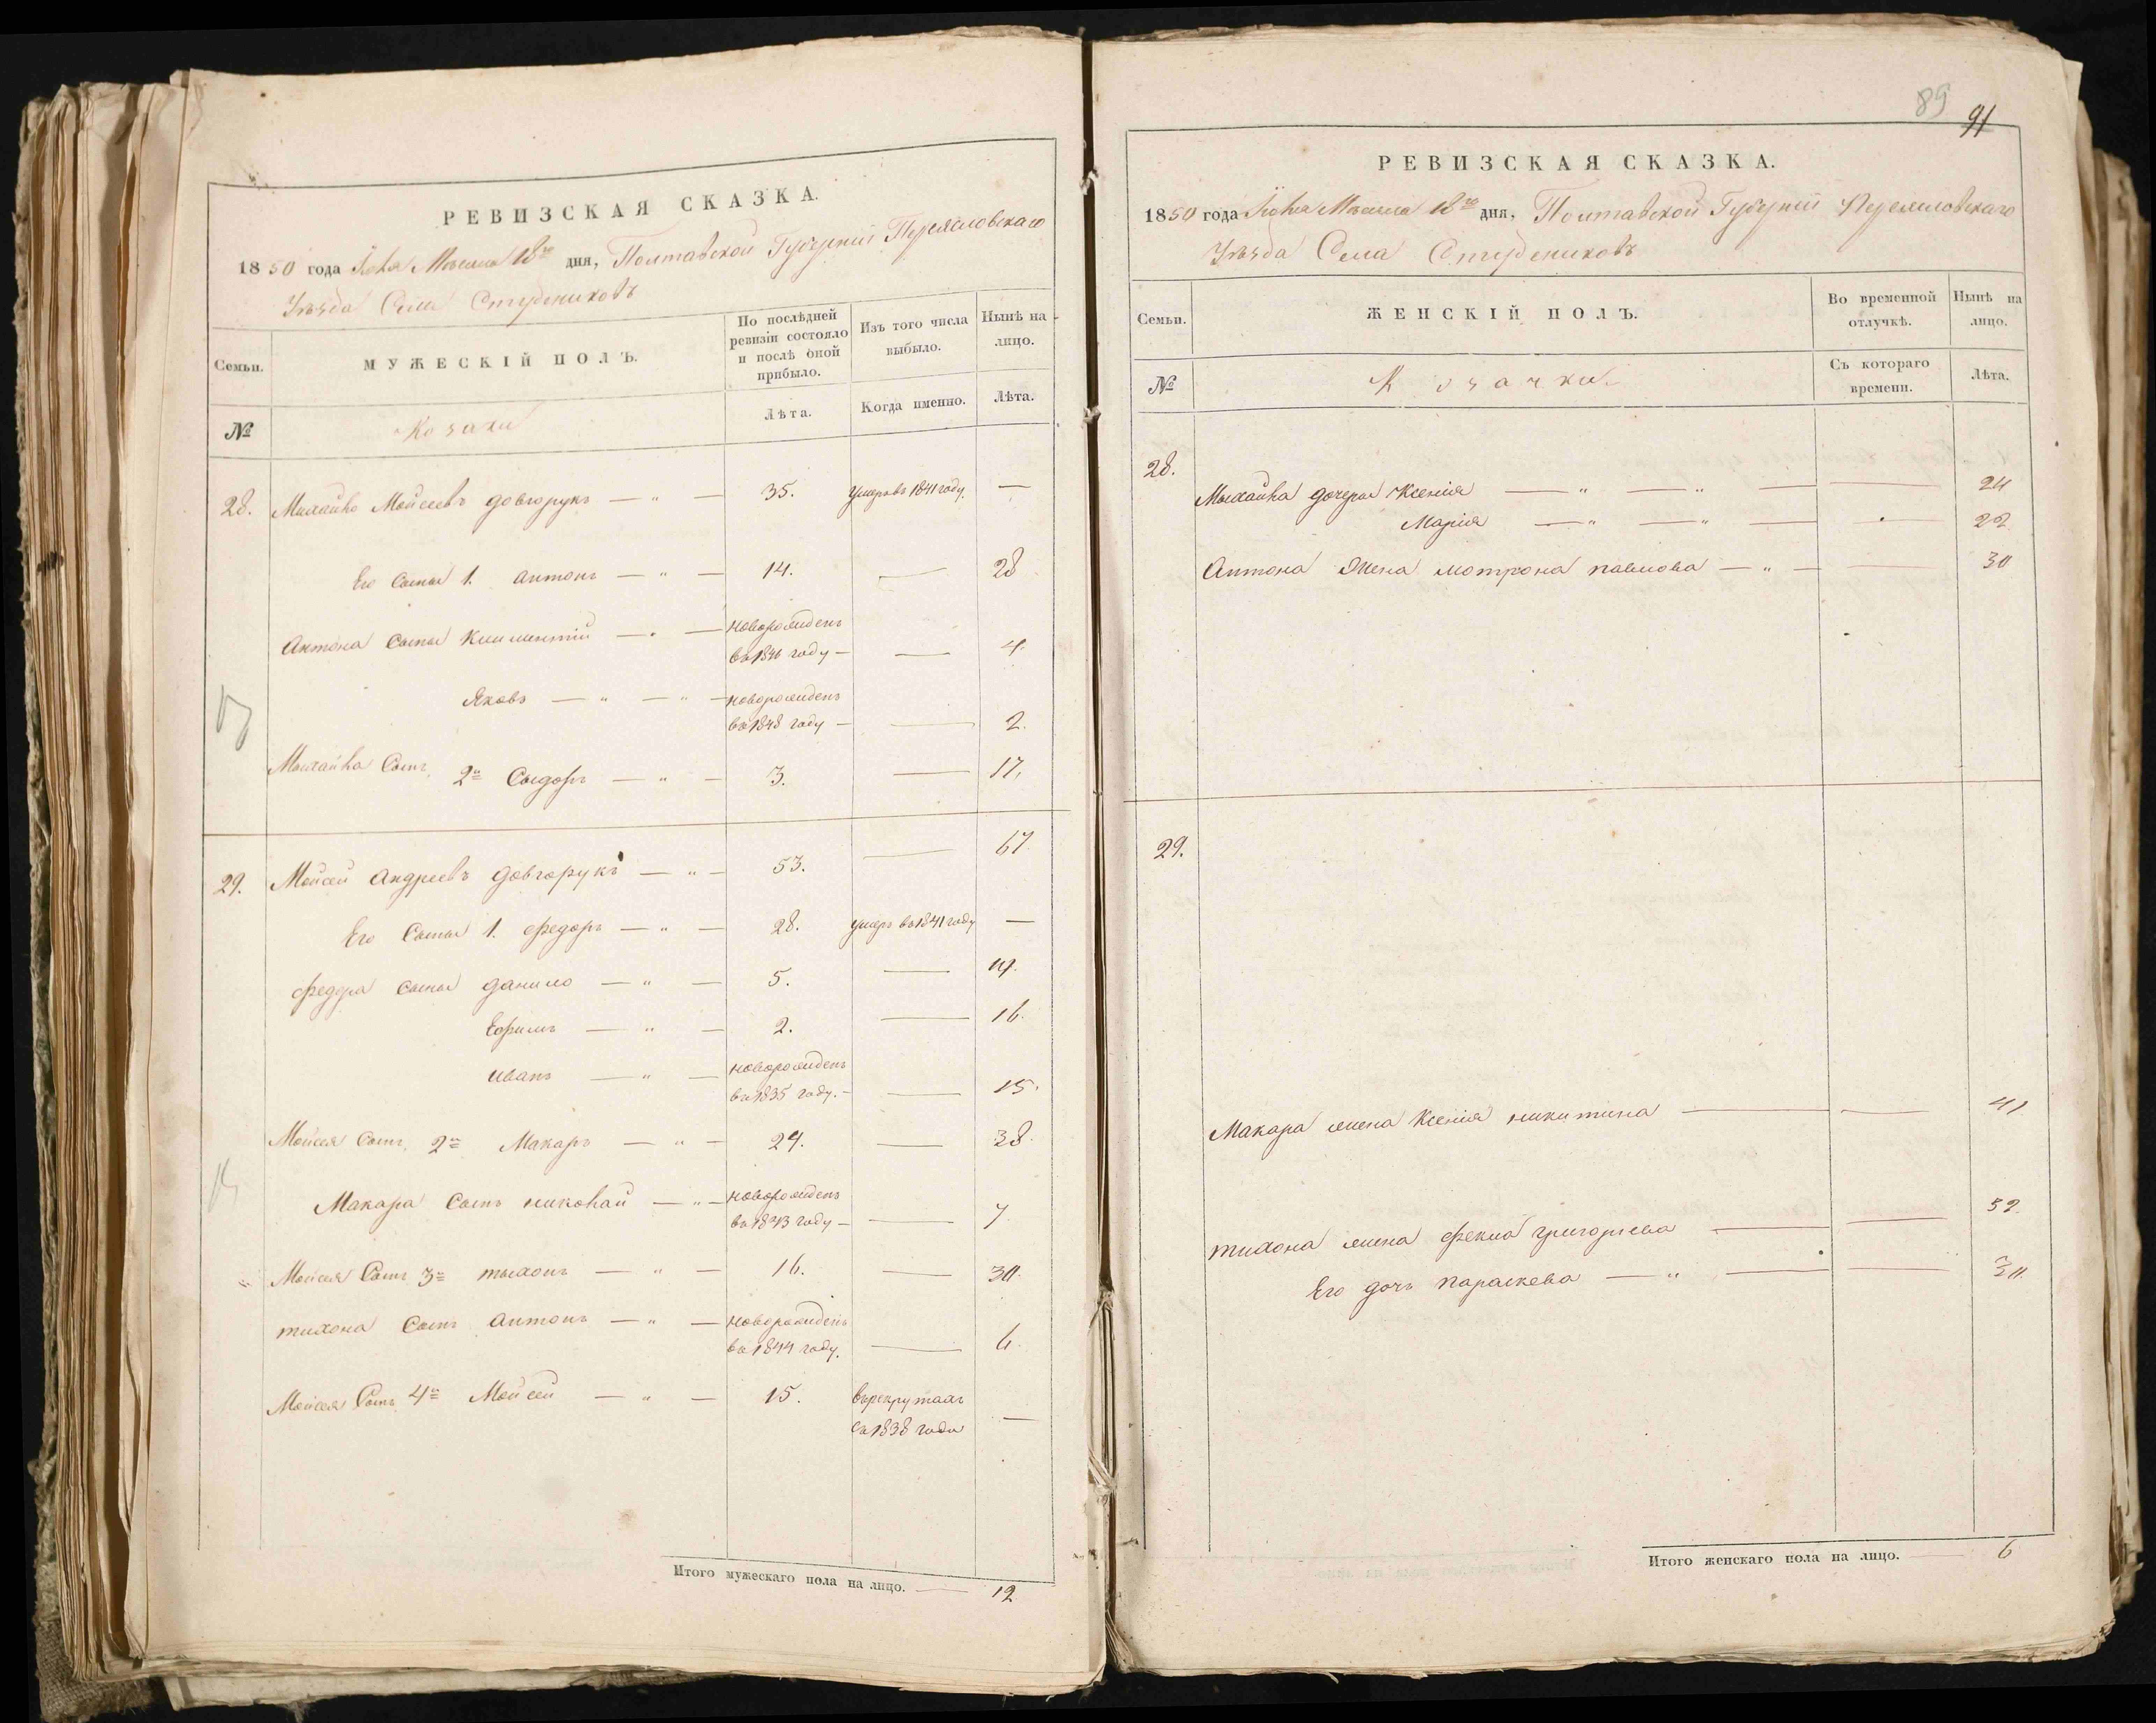 РЕВИЗСКАЯ СКАЗКА.
1850 года Іюня Месяца 18го дня, Полтавской Губерніи Переясловскаго
Уѣзда Села Студениковъ
Семьи.
МУЖЕСКІЙ ПОЛЪ.
По послѣдней ревизіи состояло и послѣ оной прибыло.
Изъ того числа выбыло.
Нынѣ на лицо.
№
Козаки
Лѣта.
Когда именно.
Лѣта.
28. Михайло Мойсеевъ довгорукъ — " — 35. умеръ въ 1841 году. —
Его Сыны 1. антонъ — " — 14. — 28
Антона Сыны Климентій — " — новорожденъ
въ 1846 году — — 4.
Яковъ — " — " — новорожденъ
въ 1848 году — — 2.
Михайла Сынъ 2й Сыдоръ — " — 3. — 17.
29. Мойсей андреевъ довгорукъ — " — 53. — 67
Его Сыны 1. федоръ — " — 28. умеръ въ 1841 году —
федора Сыны данило — " — 5. — 19.
Ефимъ — " — 2. — 16.
иванъ — " — новорожденъ
въ 1835 году. — — 15.
Мойсея Сынъ 2й Макаръ — " — 24. — 38.
Макара Сынъ николай — " — новорожденъ
въ 1843 году — — 7
Мойсея Сынъ 3й тыхонъ — " — 16. — 30.
тихона Сынъ антонъ — " — новорожденъ
въ 1844 году. — 6.
Мойсея Сынъ 4й Мойсей — " — 15. въ рекрутахъ
съ 1838 года —
Итого мужескаго пола на лицо. — 12
89
91
РЕВИЗСКАЯ СКАЗКА.
1850 года Іюня Месяца 18го дня, Полтавской Губерніи Переясловскаго
Уѣзда Села Студениковъ
Семьи.
ЖЕНСКІЙ ПОЛЪ.
Во временной отлучкѣ.
Нынѣ на лицо.
№
Козачки.
Съ котораго времени.
Лѣта.
28.
Михайла дочери Ксенія — " — " — — 24
Марія — " — " — — 22.
Антона жена мотрона павлова — " — — 30
29.
Макара жена Ксенія никитина — — 41
тихона жена фекла григорьева — — 32.
Его дочь параскева — " — —
Итого женскаго пола на лицо. — 6